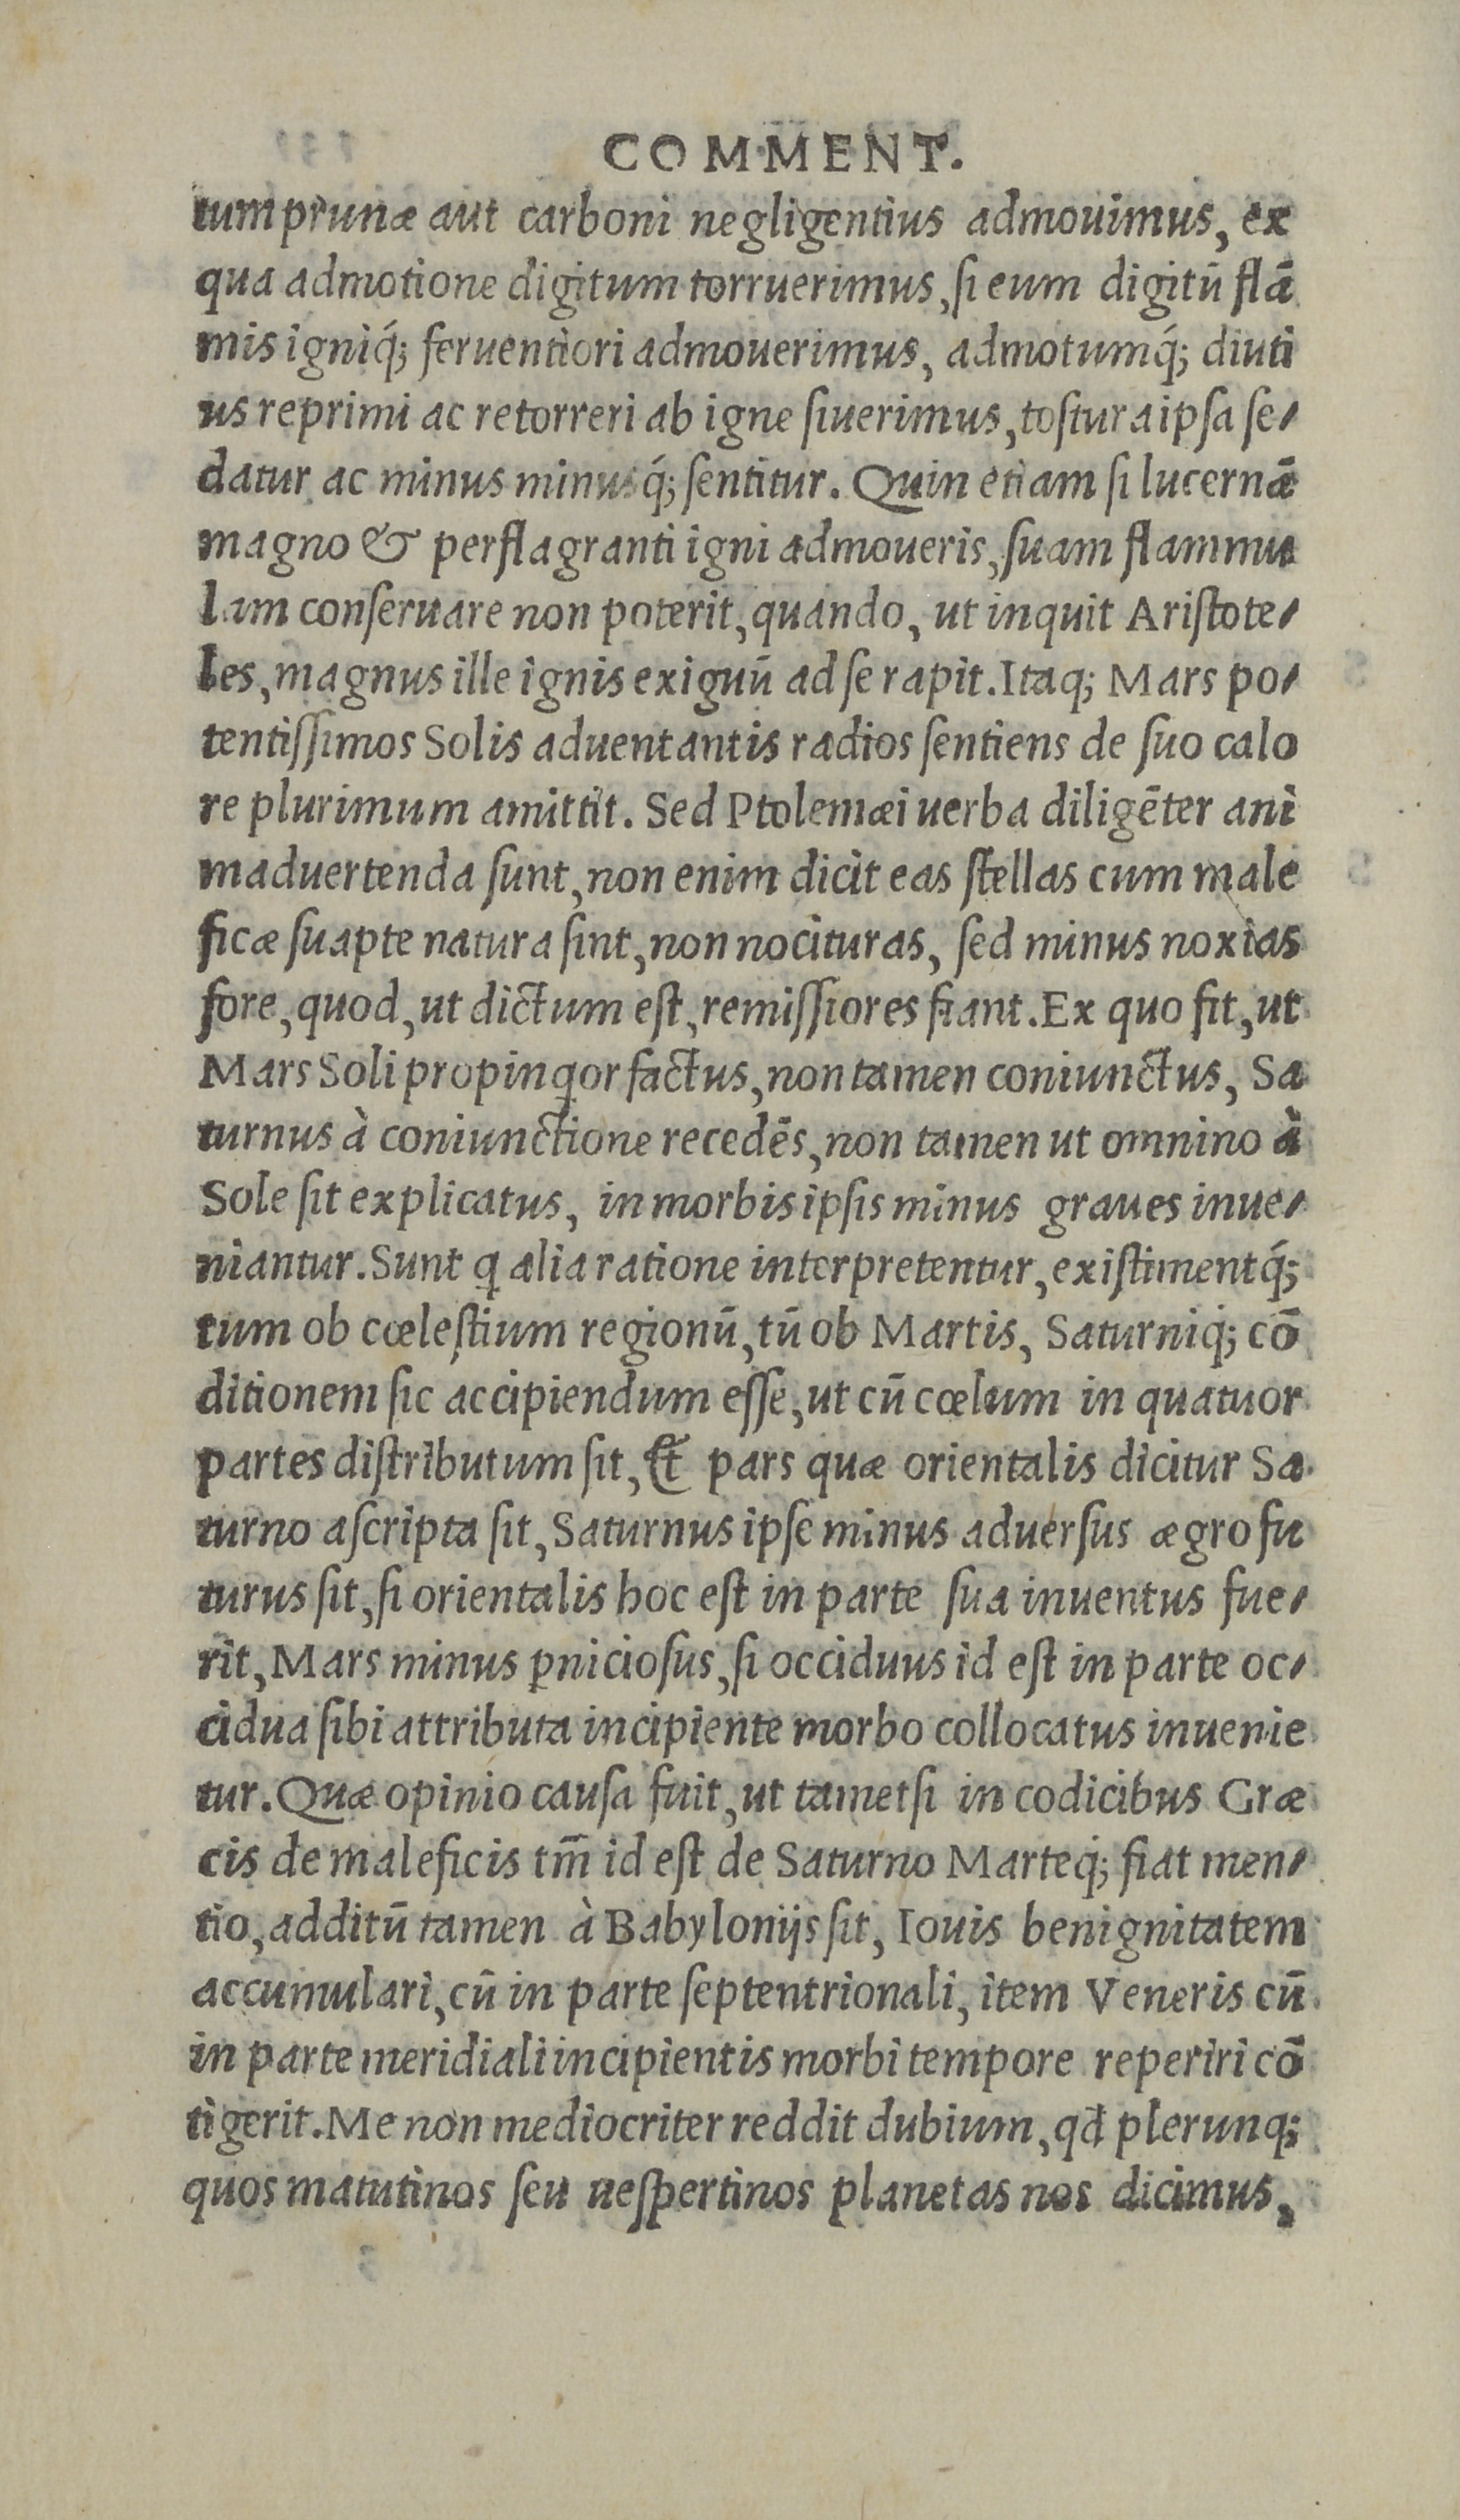 COMMENT.
tum prunæ aut carboni negligentius admouimus, ex
qua admotione digitum torruerimus, ſi eum digitū flā
mis igniq́; feruentiori admouerimus, admotumq́; diuti
us reprimi ac retorreri ab igne ſiuerimus, toſtura ipſa ſe⸗
datur ac minus minusq́; ſentitur. Quin etiam ſi lucernā
magno & perflagranti igni admoueris, ſuam flammu
lam conſeruare non poterit, quando, ut inquit Ariſtote⸗
les, magnus ille ignis exiguū ad ſe rapit. Itaq; Mars po⸗
tentiſſimos Solis aduentantis radios ſentiens de ſuo calo
re plurimum amittit. Sed Ptolemæi uerba diligēter ani
maduertenda ſunt, non enim dicit eas ſtellas cum male
ficæ ſuapte natura ſint, non nocituras, ſed minus noxias
fore, quod, ut dictum eſt, remiſſiores fiant. Ex quo fit, ut
Mars Soli propinqor factus, non tamen coniunctus, Sa
turnus à coniunctione recedēs, non tamen ut omnino à
Sole ſit explicatus, in morbis ipſis minus graues inue⸗
niantur. Sunt q alia ratione interpretentur, exiſtimentq́;
tum ob cœleſtium regionū, tū ob Martis, Saturniq́; cō
ditionem ſic accipiendum eſſe, ut cū cœlum in quatuor
partes diſtributum ſit, & pars quæ orientalis dicitur Sa
turno aſcripta ſit, Saturnus ipſe minus aduerſus ægro fu
turus ſit, ſi orientalis hoc eſt in parte ſua inuentus fue⸗
rit, Mars minus ꝑnicioſus, ſi occiduus id eſt in parte oc⸗
cidua ſibi attributa incipiente morbo collocatus inuenie
tur. Quæ opinio cauſa fuit, ut tametſi in codicibus Græ
cis de maleficis tm̄ id eſt de Saturno Marteq́; fiat men⸗
tio, additū tamen à Babylonijs ſit, Iouis benignitatem
accumulari, cū in parte ſeptentrionali, item Veneris cū
in parte meridiali incipientis morbi tempore reperiri cō
tigerit. Me non mediocriter reddit dubium, qđ plerunq;
quos matutinos ſeu ueſpertinos planetas nos dicimus,